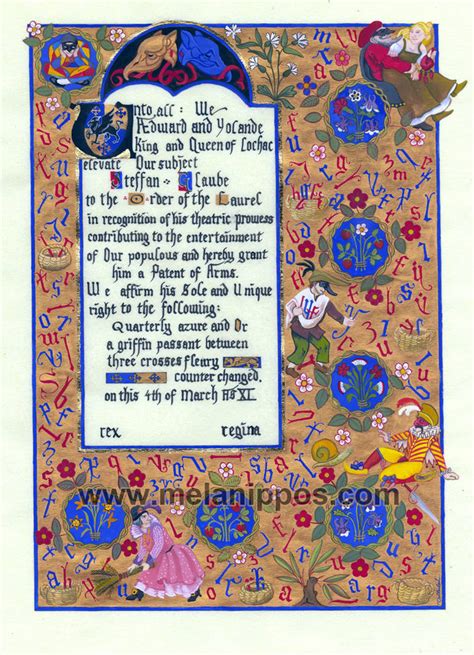 Unto, all: We
Æduard and Yolande
King and Queen of Lochac
elevate Our subject
Steffan Glaube
to the Order of the Laurel
in recognition of his theatric prowess
contributing to the entertainment
of Our populous and hereby grant
him a Patent of Arms.
We affirm his Sole and Unique
right to the following:
Quarterly azure and Or
a griffin passant between
three crosses fleury
counter changed.
on this 4th of March AS XL
rex regina
www.melanippos.com